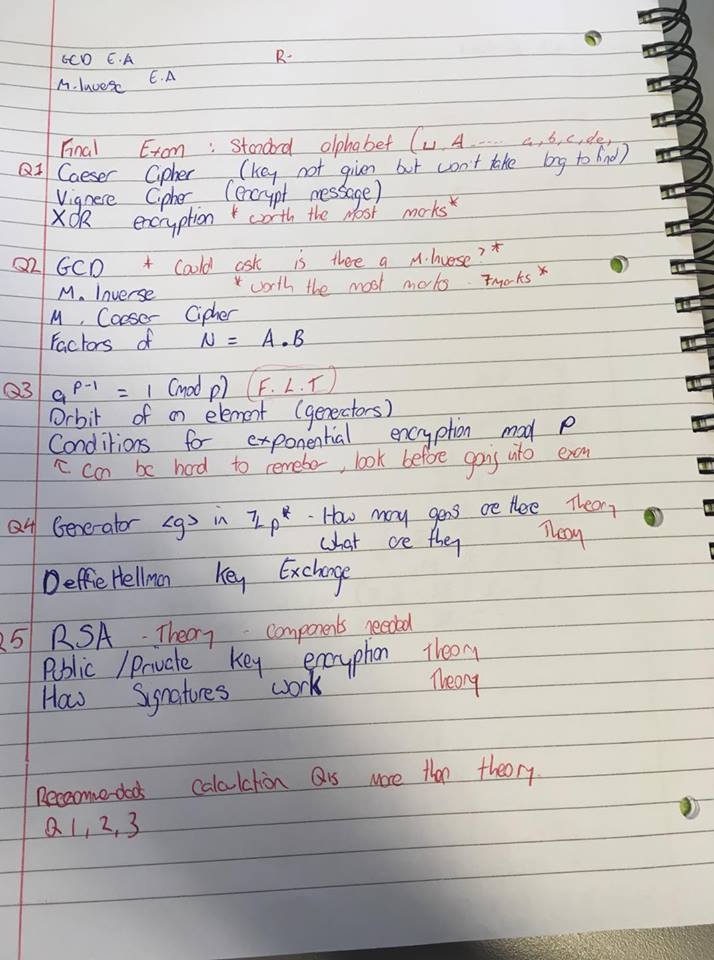 GCD E.A R-
M.Inverse E.A
Final Exam : Standard alphabet (⊔ A ..... a,b,c,de,
Q1 Caeser Cipher (key not given but won't take long to find)
Vignere Cipher (encrypt message)
XOR encryption * worth the most marks *
Q2 GCD * Could ask is there a M.Inverse? *
M. Inverse * worth the most marks - 7marks *
M. Caeser Cipher
Factors of N = A.B
Q3 a^p-1 = 1 (mod p) (F.L.T)
Orbit of an element (generators)
Conditions for exponential encryption mod P
↖ Can be hard to remeber, look before going into exam
Q4 Generator <g> in ℤp* - How many gens are there Theory
What are they Theory
Deffie Hellman Key Exchange
Q5 RSA - Theory - components needed
Public / Private key encryption Theory
How Signatures work Theory
Recommendeds calculation Qis more than theory.
Q 1, 2, 3